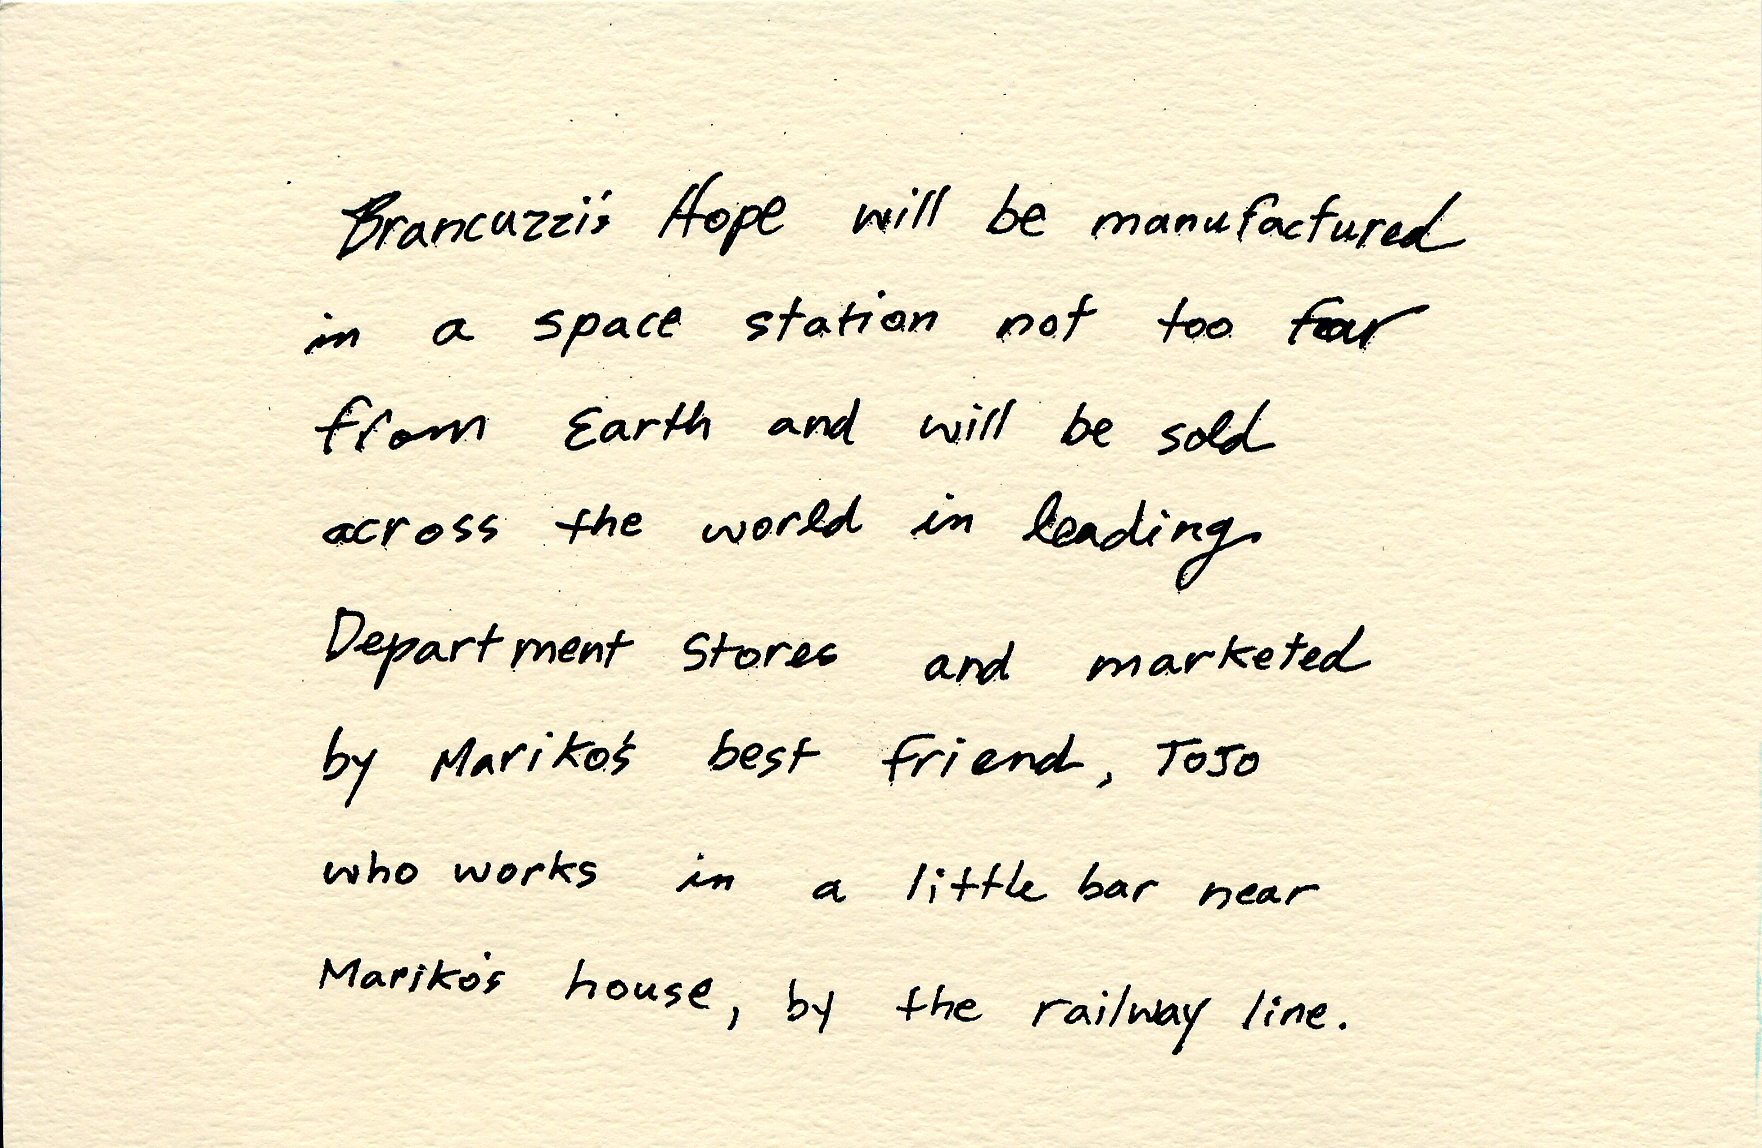 Brancuzzi's Hope will be manufactured
in a space station not too far
from Earth and will be sold
across the world in leading
Department Stores and marketed
by Mariko's best friend, ToJo
who works in a little bar near
Mariko's house, by the railway line.